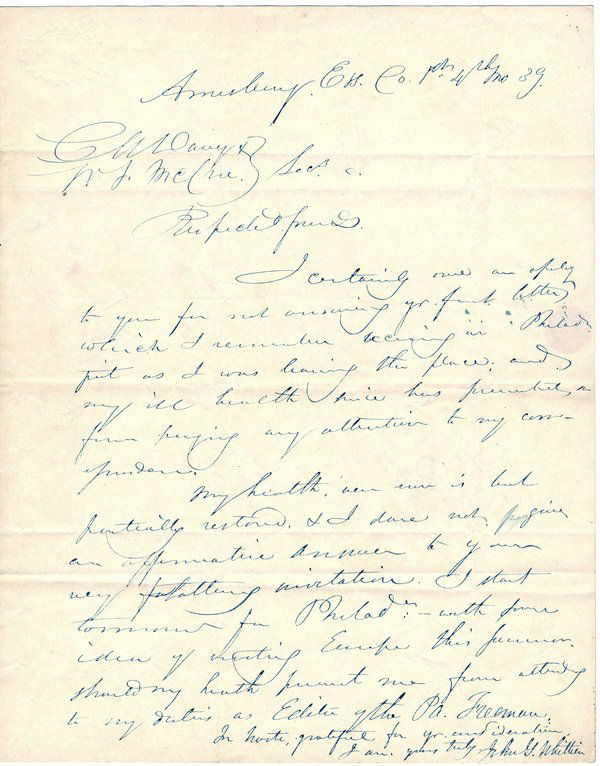 Amesbury. Ess. Co. 1st 4th mo 39.
& Wm J. McClure. Secs.
Respected friends.
I certainly owe an apology
to you for not answering yr. first letter,
which I remember receiving in Philada.
just as I was leaving the place: and
my ill health since has prevented me
from paying any attention to my corre-
spondence.
My health, even now is but
partially restored, & I dare not give
an affirmative answer to your
very flattering invitation. I start
tomorrow for Philada. – with some
idea of visiting Europe this summer,
should my health prevent me from attending
to my duties as Editor of the Pa. Freeman.
In haste, grateful for yr. consideration,
I am yours truly John G. Whittier